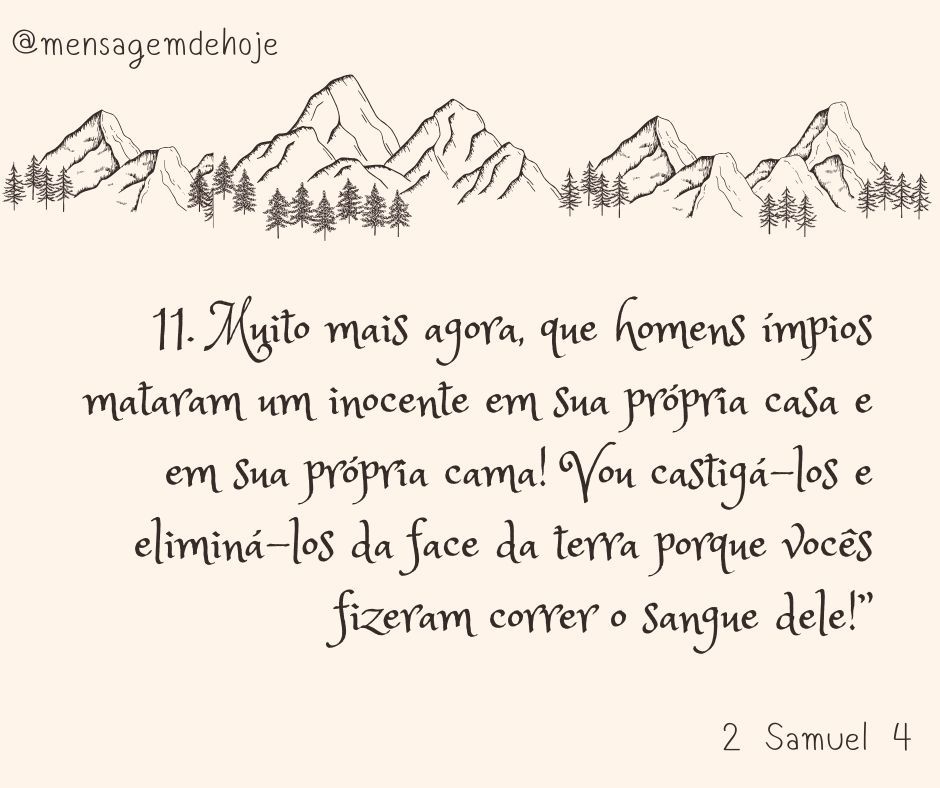 @mensagemdehoje
11. Muito mais agora, que homens ímpios
mataram um inocente em sua própria casa e
em sua própria cama! Vou castigá-los e
eliminá-los da face da terra porque vocês
fizeram correr o sangue dele!”
2 Samuel 4